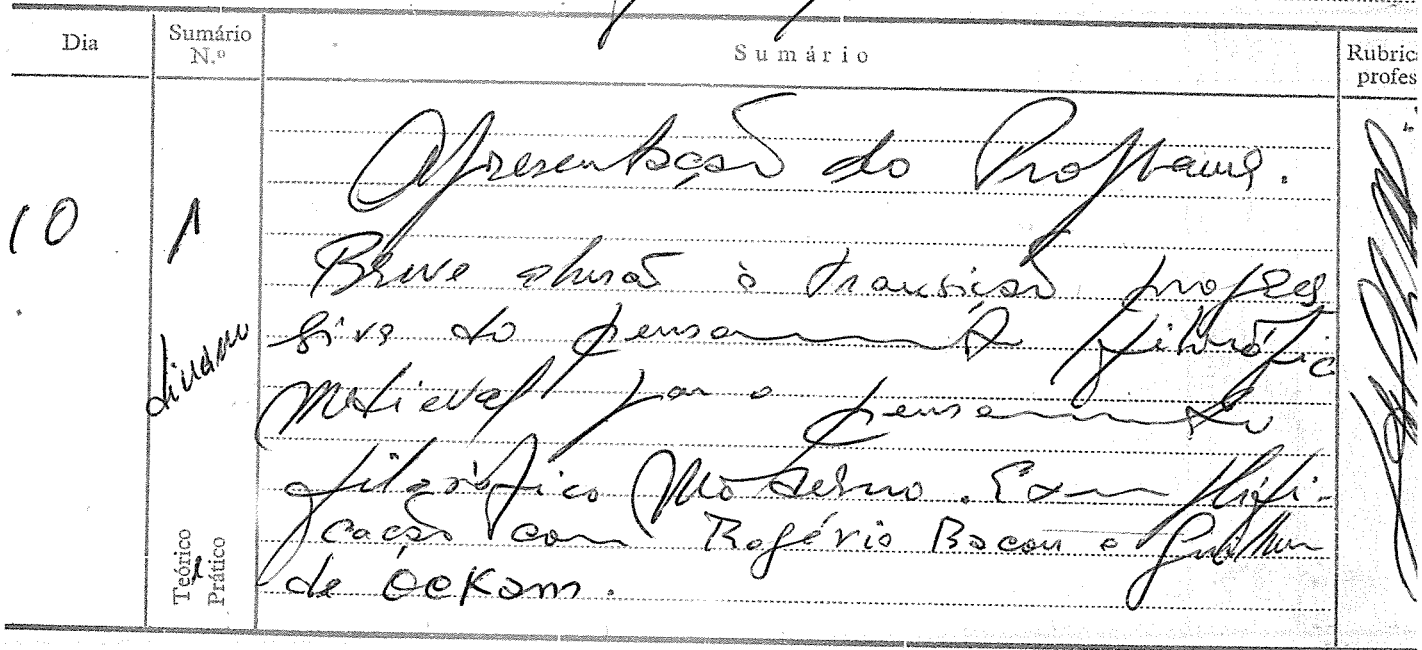 Dia
Sumário N.º
Sumário
Rubrica
profes
10
1
Apresentação do Programa.
Breve alusão à transição progres
siva do pensamento filosófico
Medieval para o pensamento
filosófico Moderno. Exemplifi-
cação com Rogério Bacon e Guilherme
de Ockam.
Teórico
e
Prático